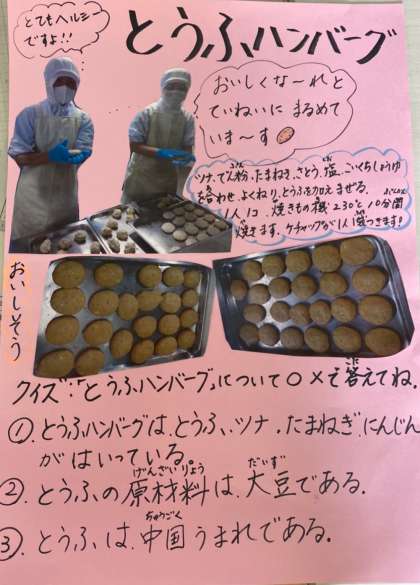 とてもヘルシー
ですよ!!
とうふハンバーグ
おいしくな～れと
ていねいに まるめて
いま～す
ツナ、でん粉、たまねぎ、さとう、塩、こいくちしょうゆ
を合わせ、よくねり、とうふを加えまぜる。
1人1コ。焼きもの機 230℃ 10分間
焼きます。ケチャップが1人1袋つきます!
おいしそう
クイズ:「とうふハンバーグ」について○×で答えてね。
①.とうふハンバーグは、とうふ、ツナ、たまねぎ、にんじん
がはいっている。
②.とうふの原材料は、大豆である。
③.とうふは、中国うまれである。